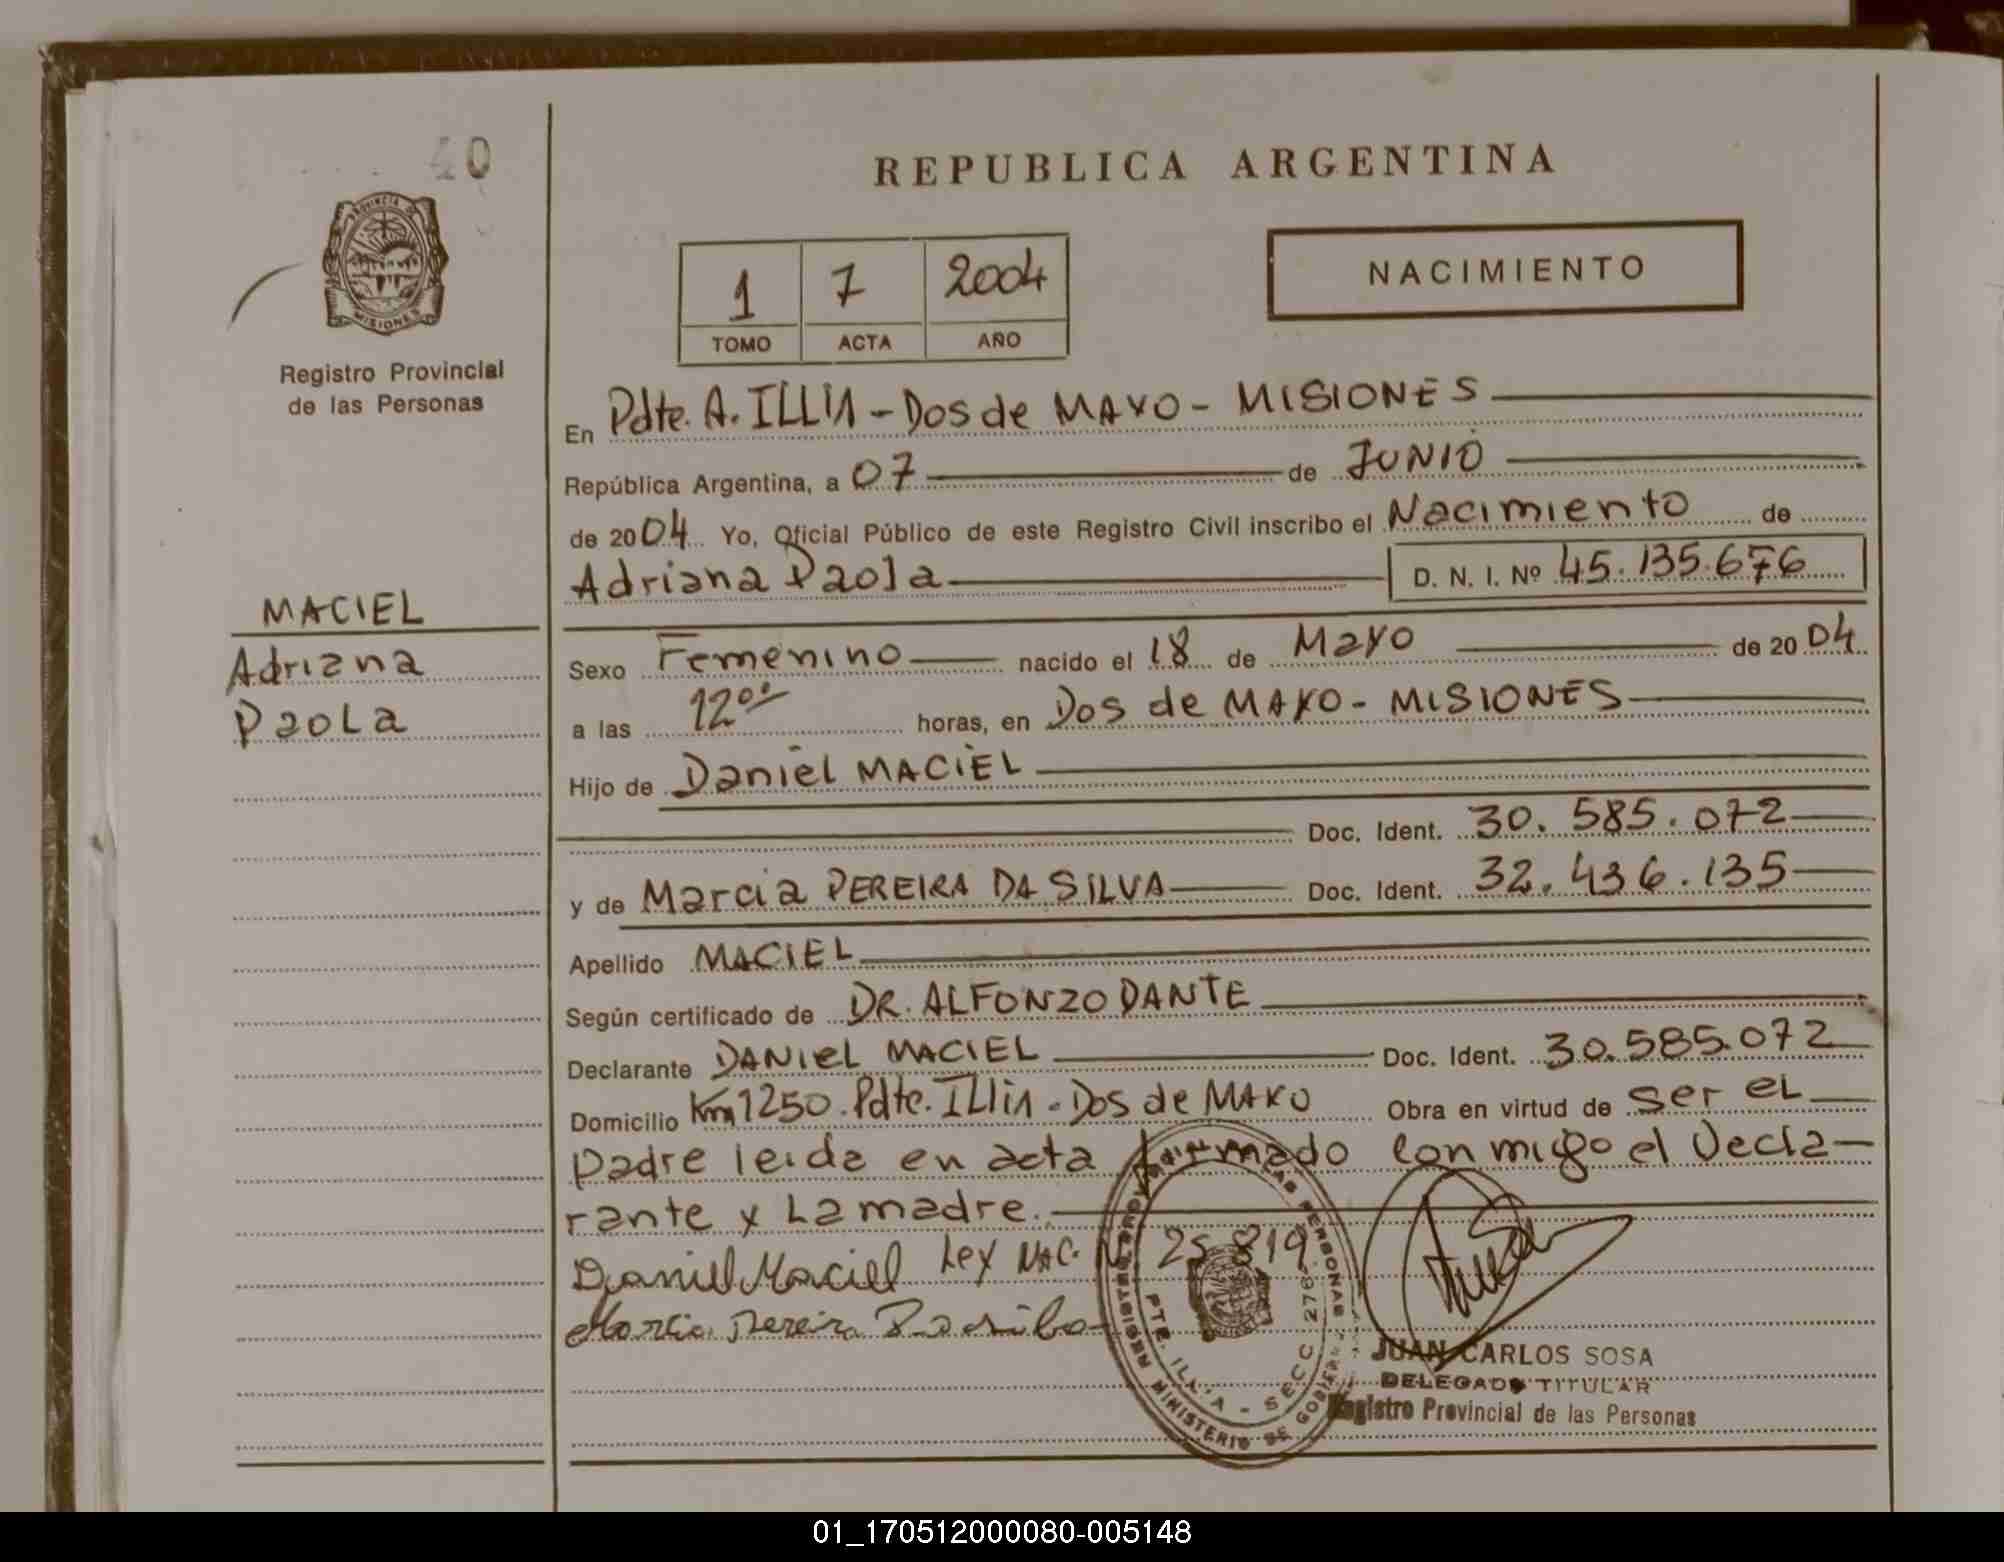 40
PROVINCIA DE
MISIONES
Registro Provincial
de las Personas
MACIEL
Adriana
Paola
REPUBLICA ARGENTINA
1 7 2004
TOMO ACTA AÑO
NACIMIENTO
En Pdte. A. ILLIA - Dos de MAYO - MISIONES
República Argentina, a 07 de JUNIO
de 2004 Yo, Oficial Público de este Registro Civil inscribo el Nacimiento de
Adriana Paola D. N. I. Nº 45.135.676
Sexo Femenino nacido el 18 de Mayo de 2004
a las 12⁰⁰ horas, en Dos de MAYO - MISIONES
Hijo de Daniel MACIEL
Doc. Ident. 30.585.072
y de Marcia PEREIRA DA SILVA Doc. Ident. 32.436.135
Apellido MACIEL
Según certificado de DR. ALFONZO DANTE
Declarante DANIEL MACIEL Doc. Ident. 30.585.072
Domicilio Km 1250. Pdte. Illia - Dos de MAYO Obra en virtud de ser el
padre leida en acta firmado conmigo el Decla-
rante y La madre.
Daniel Maciel Ley NAC. N 25.819
Marcia Pereira Da silva
PTE. ILLIA - SECC 276
MINISTERIO DE GOBIER
JUAN CARLOS SOSA
DELEGADO TITULAR
Registro Provincial de las Personas
01_170512000080-005148